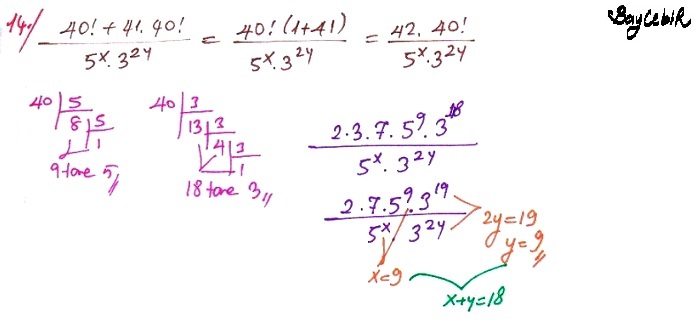 BayCebiR
14) (40! + 41.40!) / (5^x . 3^2y) = (40! (1+41)) / (5^x . 3^2y) = (42. 40!) / (5^x . 3^2y)
40 | 5
8 | 5
1
9 tane 5,,
40 | 3
13 | 3
4 | 3
1
18 tane 3,,
(2.3.7.5^9.3^18) / (5^x . 3^2y)
(2.7.5^9.3^19) / (5^x . 3^2y)
2y=19
y=9,,
x=9
x+y=18